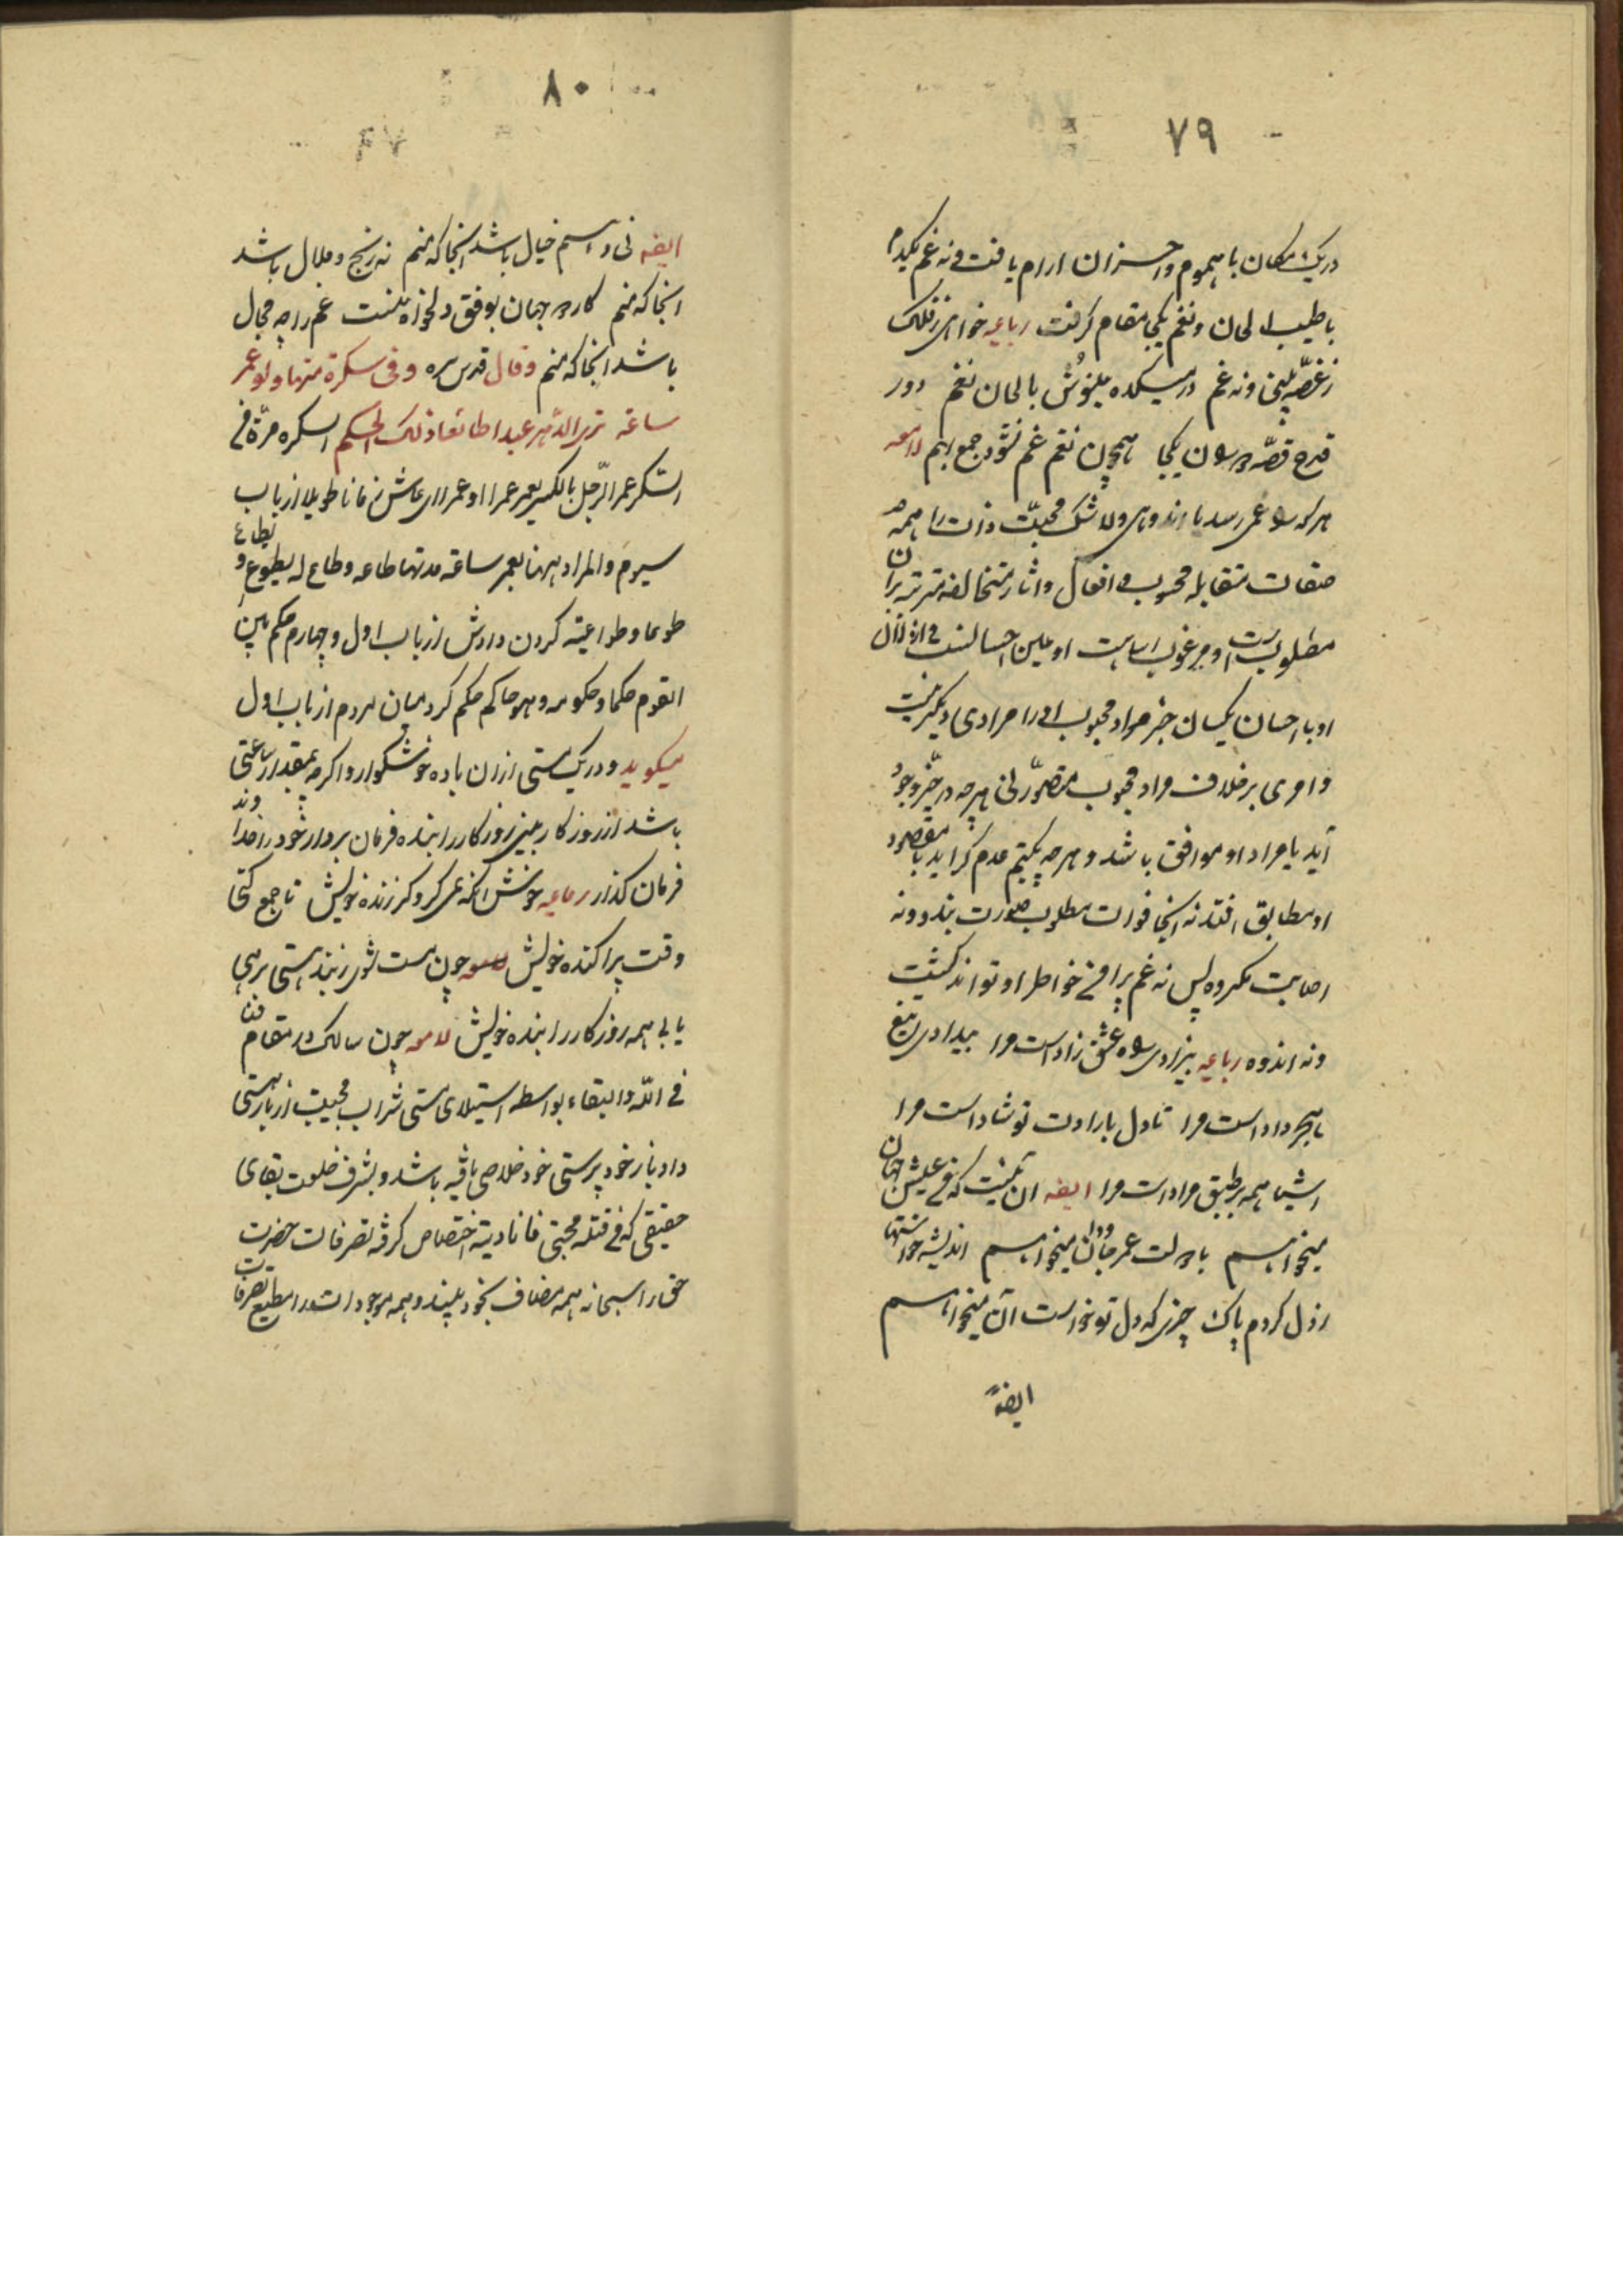 ٧٩
در یک مکان با هموم و احزان آرام یافت و نه غم یکدم
با طیب الحان و نغم یکجا مقام گرفت رباعیه خواهی ز فلک
نه غصّه بینی و نه غم در میکده می‌نوش بالحان نغم دور
قدح قصّه یکجا همچون نغم غم نشود جمع بهم لامعه
هر که غمی رسد یا اندوهی و لا شک محبّت ذات را همه
صفات متقابله محبوب و افعال و آثار متخالفه مترتبه بران
مطلوبست و مرغوب اساءت او عین احسانست و اذلال
او با احسان یکسان جز مراد محبوب او را مرادی دیگر نیست
و امری بر خلاف مراد محبوب متصوّر نی هر چه در حیّز وجود
آید با مراد او موافق باشد و هر چه بکتم عدم گراید با مقصود
او مطابق افتد نه اینجا فوات مطلوب صورت بندد و نه
اصابت مکروه پس نه غم پیرامن خواطر او تواند گشت
و نه اندوه رباعیه عشق زاد است مرا بیدادی تیغ
هجر داد است مرا تا دل بارادت تو شاد است مرا
اشیا همه بر طبق مراد است مرا ایضه آن نیست که من عیش جهان
میخواهم یا دولت عمر جاودان میخواهم اندیشه خواستنها
ز دل کردم پاک چیزی که دل تو خواست آن میخواهم
ایضهً
٨٠
ایضه نی و اسم خیال باشد آنجا که منم نه رنج و ملال باشد
آنجا که منم کار جهان بوفق دلخواه منست غم را چه مجال
باشد آنجا که منم وقال قدس سره وفی سکرة منها ولو عمر
ساعة تری الدّهر عبدا طائعا ولک الحکم السکره مرّة فی
السّکر عمر الرّجل بالکسر یعمر عمرا او عمرا ای عاش زمانا طویلا از باب
سیوم والمراد ههنا بعمر ساعة مدتها طاعه وطاع له یطوع و یطاع
طوعا وطواعیة گردن دادش از باب اول و چهارم حکم بین
القوم حکما و حکومه و هو حاکم حکم کرد میان مردم از باب اول
میگوید و در یک مستی ازان باده خوشگوار و اگر چه بمقدار ساعتی
باشد از روزگار بینی روزگار را بنده فرمان بردار خود را خداوند
فرمان گذار رباعیه خوش آنکه گر زنده خویش تا جمع کنی
وقت پراکنده خویش چون مست شوی ز بند هستی برهی
یابی همه روزگار را بنده خویش لامعه چون سالک در مقام فنا
فی اللّه والبقاء بواسطه استیلای مستی شراب محبت از بار هستی
و ادبار خود پرستی خود خلاصی یافته باشد و بشرف خلعت بقای
حقیقی که من قتله محبتی فانا دیته اختصاص گرفته تصرفات حضرت
حق را سبحانه همه مضاف بخود بیند و همه موجودات را مطیع تصرفات